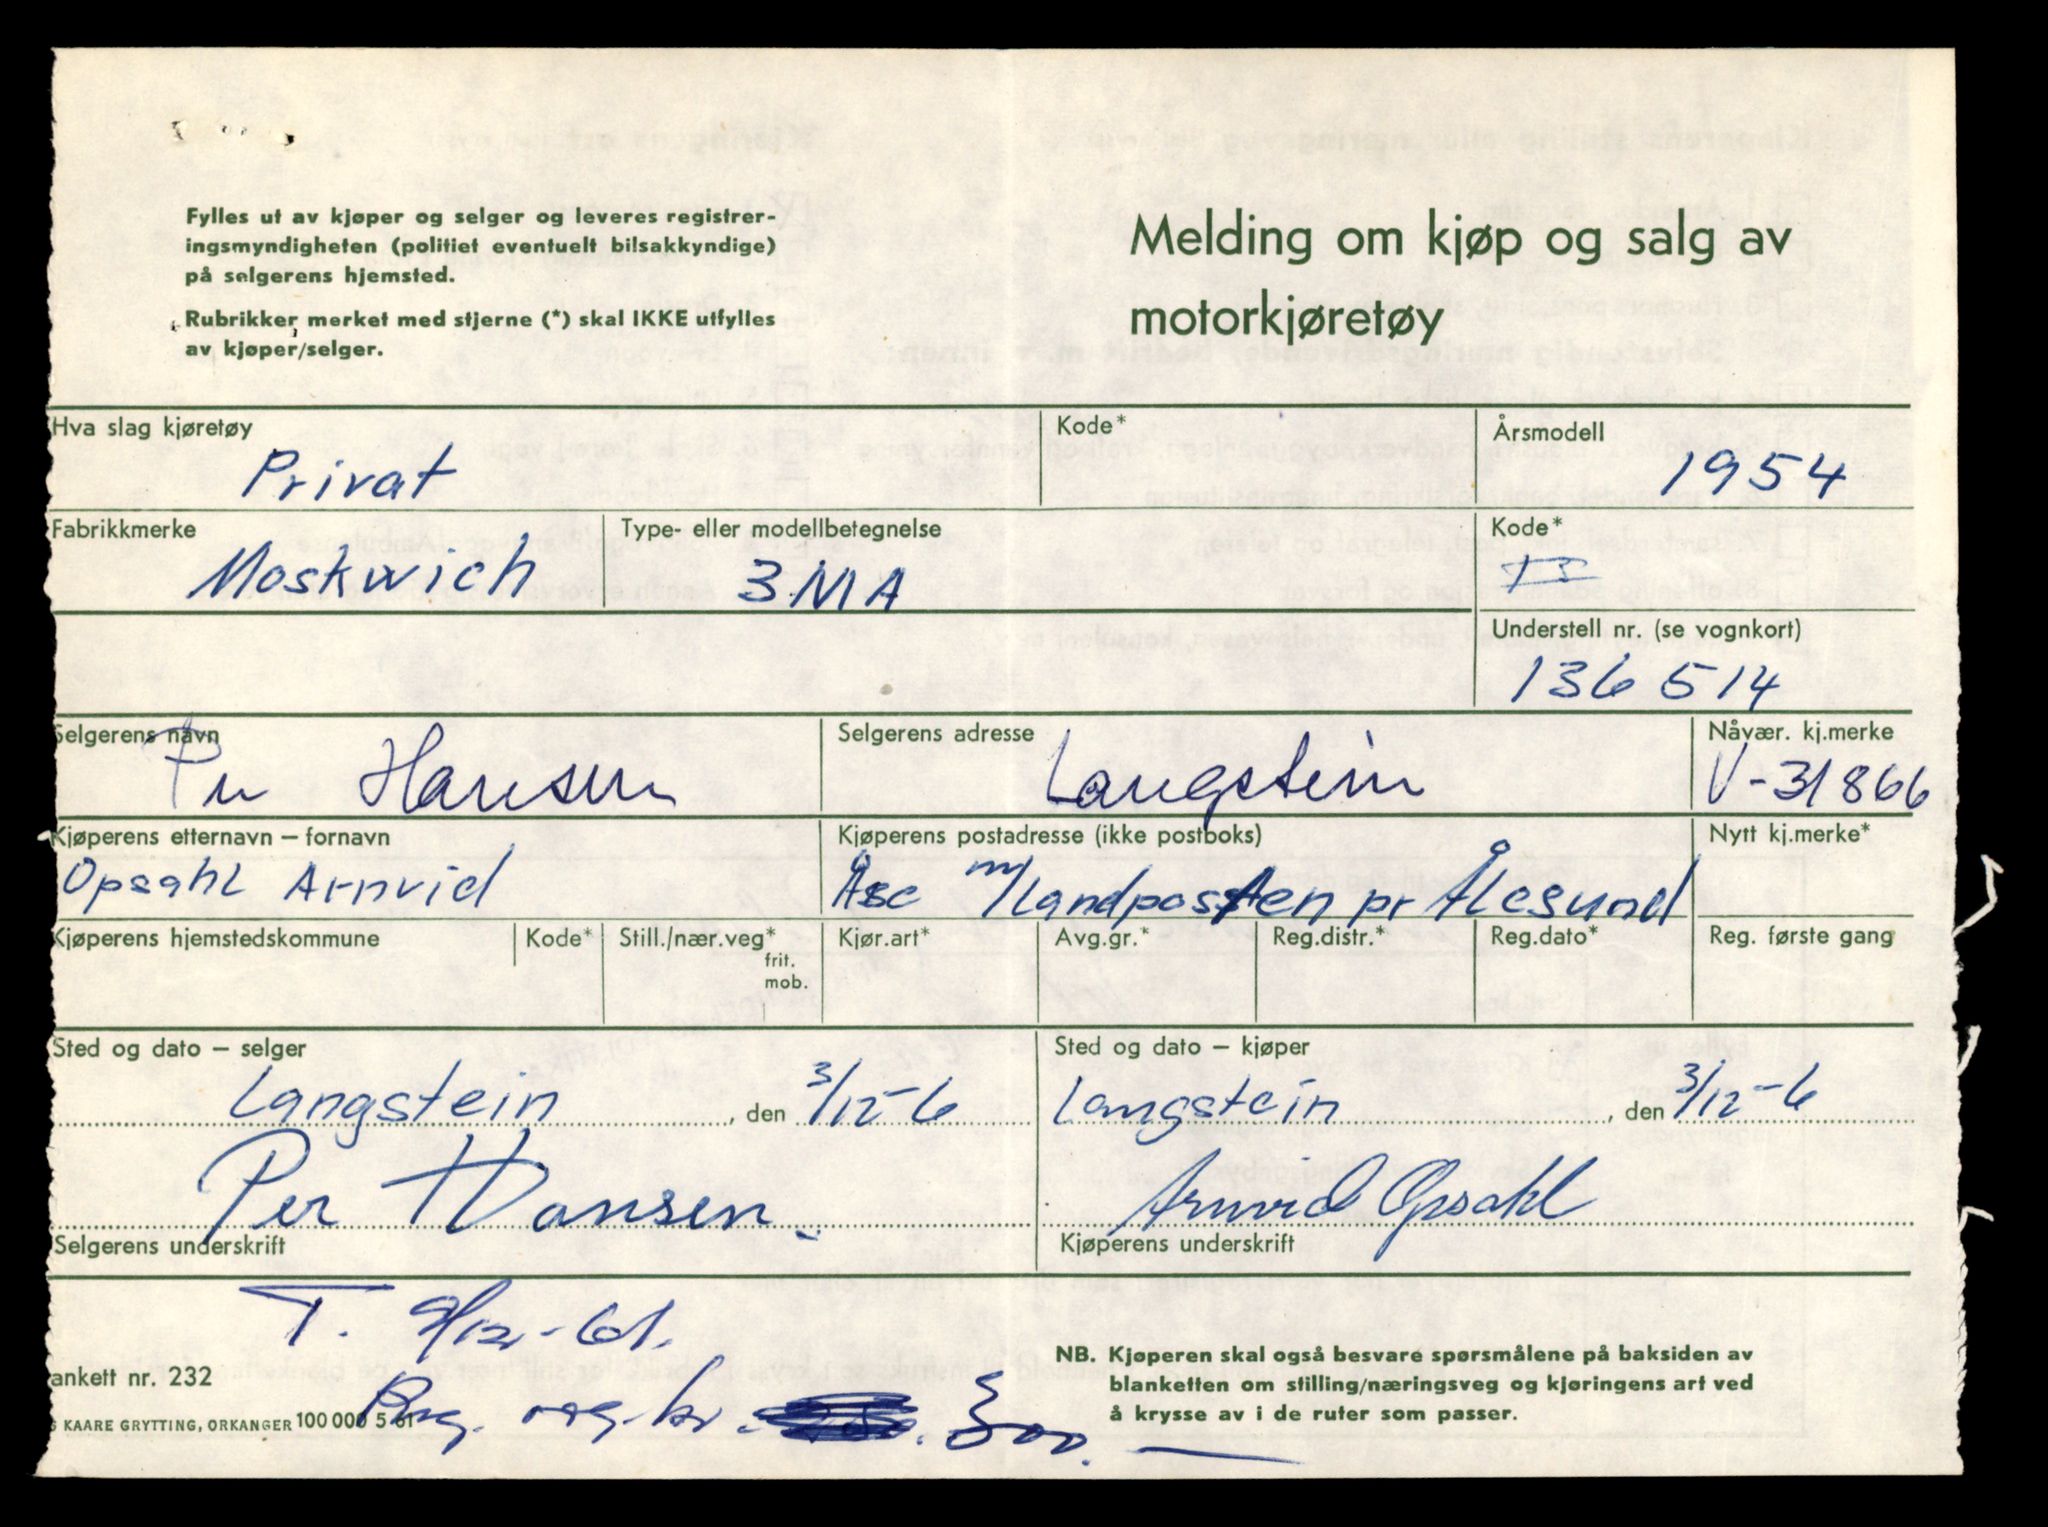 Fylles ut av kjøper og selger og leveres registrer-
ingsmyndigheten (politiet eventuelt bilsakkyndige)
på selgerens hjemsted.
Rubrikker merket med stjerne (*) skal IKKE utfylles
av kjøper/selger.
Melding om kjøp og salg av
motorkjøretøy
Hva slag kjøretøy
Kode*
Årsmodell
Privat
1954
Fabrikkmerke
Type- eller modellbetegnelse
Kode*
Moskwich
3 MA
Understell nr. (se vognkort)
136 514
Selgerens navn
Selgerens adresse
Nåvær. kj.merke
Per Hansen
Langstein
V-31866
Kjøperens etternavn – fornavn
Kjøperens postadresse (ikke postboks)
Nytt kj.merke*
Opsahl Arnvid
Åse m/Landposten pr Ålesund
Kjøperens hjemstedskommune
Kode*
Still./nær.veg*
frit.
mob.
Kjør.art*
Avg.gr.*
Reg.distr.*
Reg.dato*
Reg. første gang
Sted og dato – selger
Sted og dato – kjøper
Langstein, den 3/12-6
Langstein, den 3/12-6
Per Hansen.
Arnvid Opsahl
Selgerens underskrift
Kjøperens underskrift
T. 9/12-61.
ankett nr. 232
KAARE GRYTTING, ORKANGER 100 000 5 61
kr. 300.—
NB. Kjøperen skal også besvare spørsmålene på baksiden av
blanketten om stilling/næringsveg og kjøringens art ved
å krysse av i de ruter som passer.